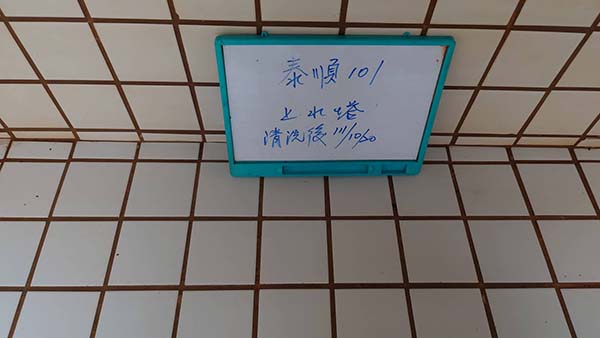 泰順101
上水塔
清洗後111/10/20